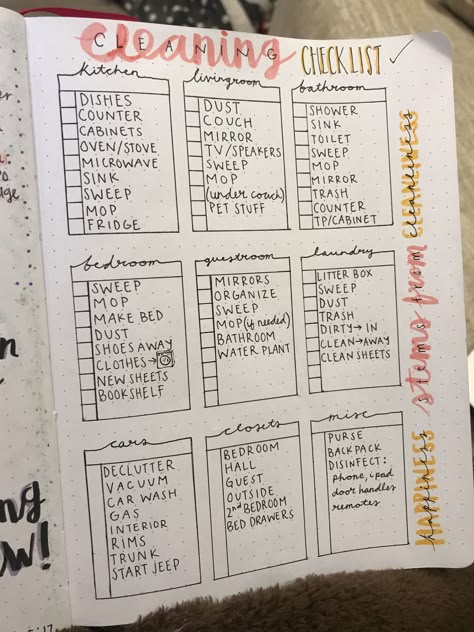 cleaning CLEANING CHECKLIST ✓
kitchen
DISHES
COUNTER
CABINETS
OVEN/STOVE
MICROWAVE
SINK
SWEEP
MOP
FRIDGE
livingroom
DUST
COUCH
MIRROR
TV/SPEAKERS
SWEEP
MOP
(under couch)
PET STUFF
bathroom
SHOWER
SINK
TOILET
SWEEP
MOP
MIRROR
TRASH
COUNTER
TP/CABINET
bedroom
SWEEP
MOP
MAKE BED
DUST
SHOES AWAY
CLOTHES→
NEW SHEETS
BOOKSHELF
guestroom
MIRRORS
ORGANIZE
SWEEP
MOP (if needed)
BATHROOM
WATER PLANT
laundry
LITTER BOX
SWEEP
DUST
TRASH
DIRTY→IN
CLEAN→AWAY
CLEAN SHEETS
cars
DECLUTTER
VACUUM
CAR WASH
GAS
INTERIOR
RIMS
TRUNK
START JEEP
closets
BEDROOM
HALL
GUEST
OUTSIDE
2nd BEDROOM
BED DRAWERS
misc
PURSE
BACKPACK
DISINFECT:
phone, ipad
door handles
remotes
HAPPINESS happiness stems from CLEANLINESS cleanliness